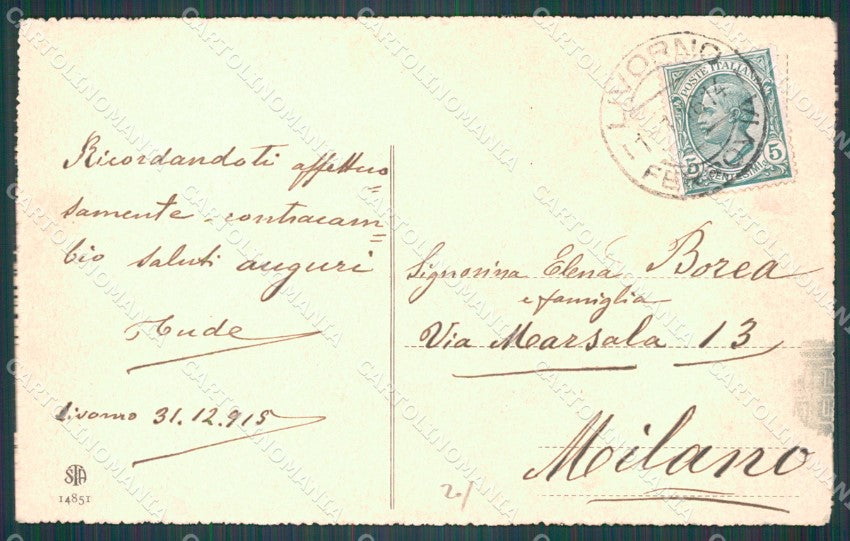 Ricordandoti affettuo=
samente - contracam=
bio saluti auguri
Livorno 31.12.915
STA
14851
LIVORNO
FERROVIA
POSTE ITALIANE
5 CENTESIMI 5
Signorina Elena Borea
e famiglia
Via Marsala 13
Milano
CARTOLINOMANIA